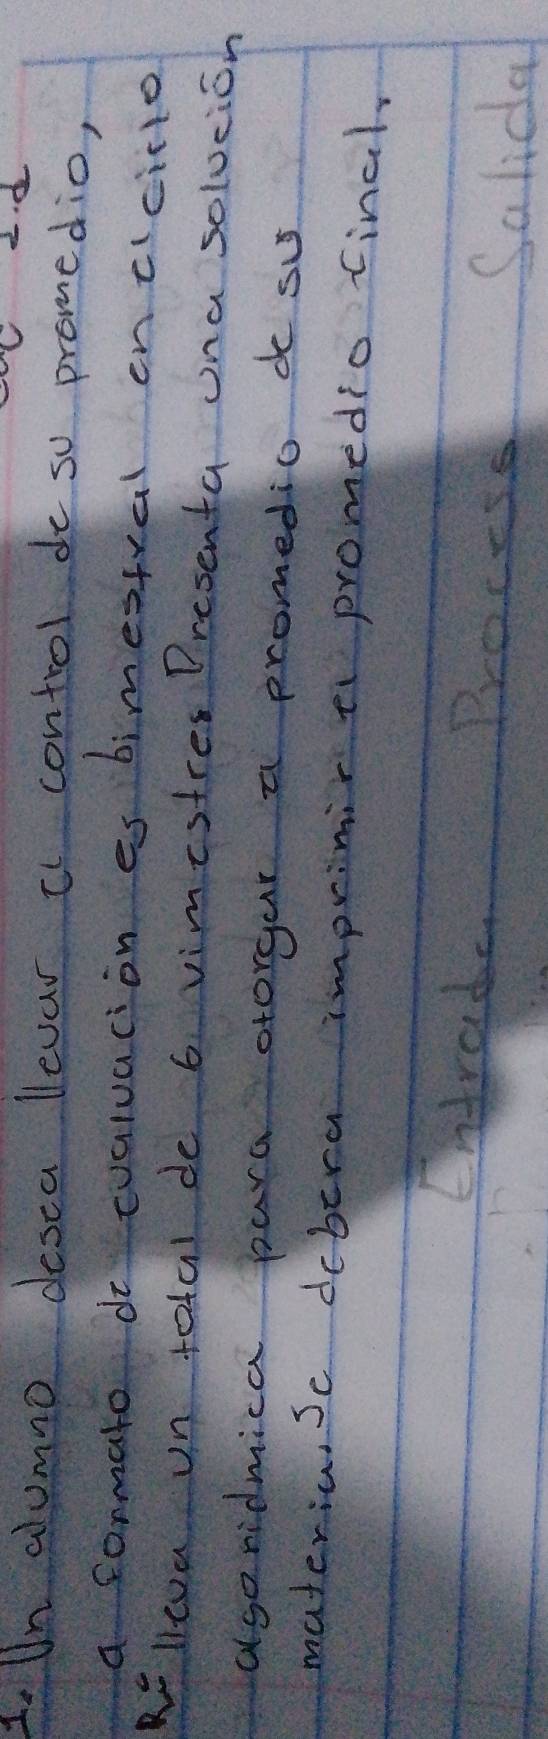 1. Un alumno desea llevar el control de su promedio,
a formato de evaluación es bimestral en el ciclo
R= lleva un total de 6 vimestres Presenta una solución
algoridmica para otorgar el promedio de su
materia. Se debera imprimir el promedio final.
Entrada Proceso Salida